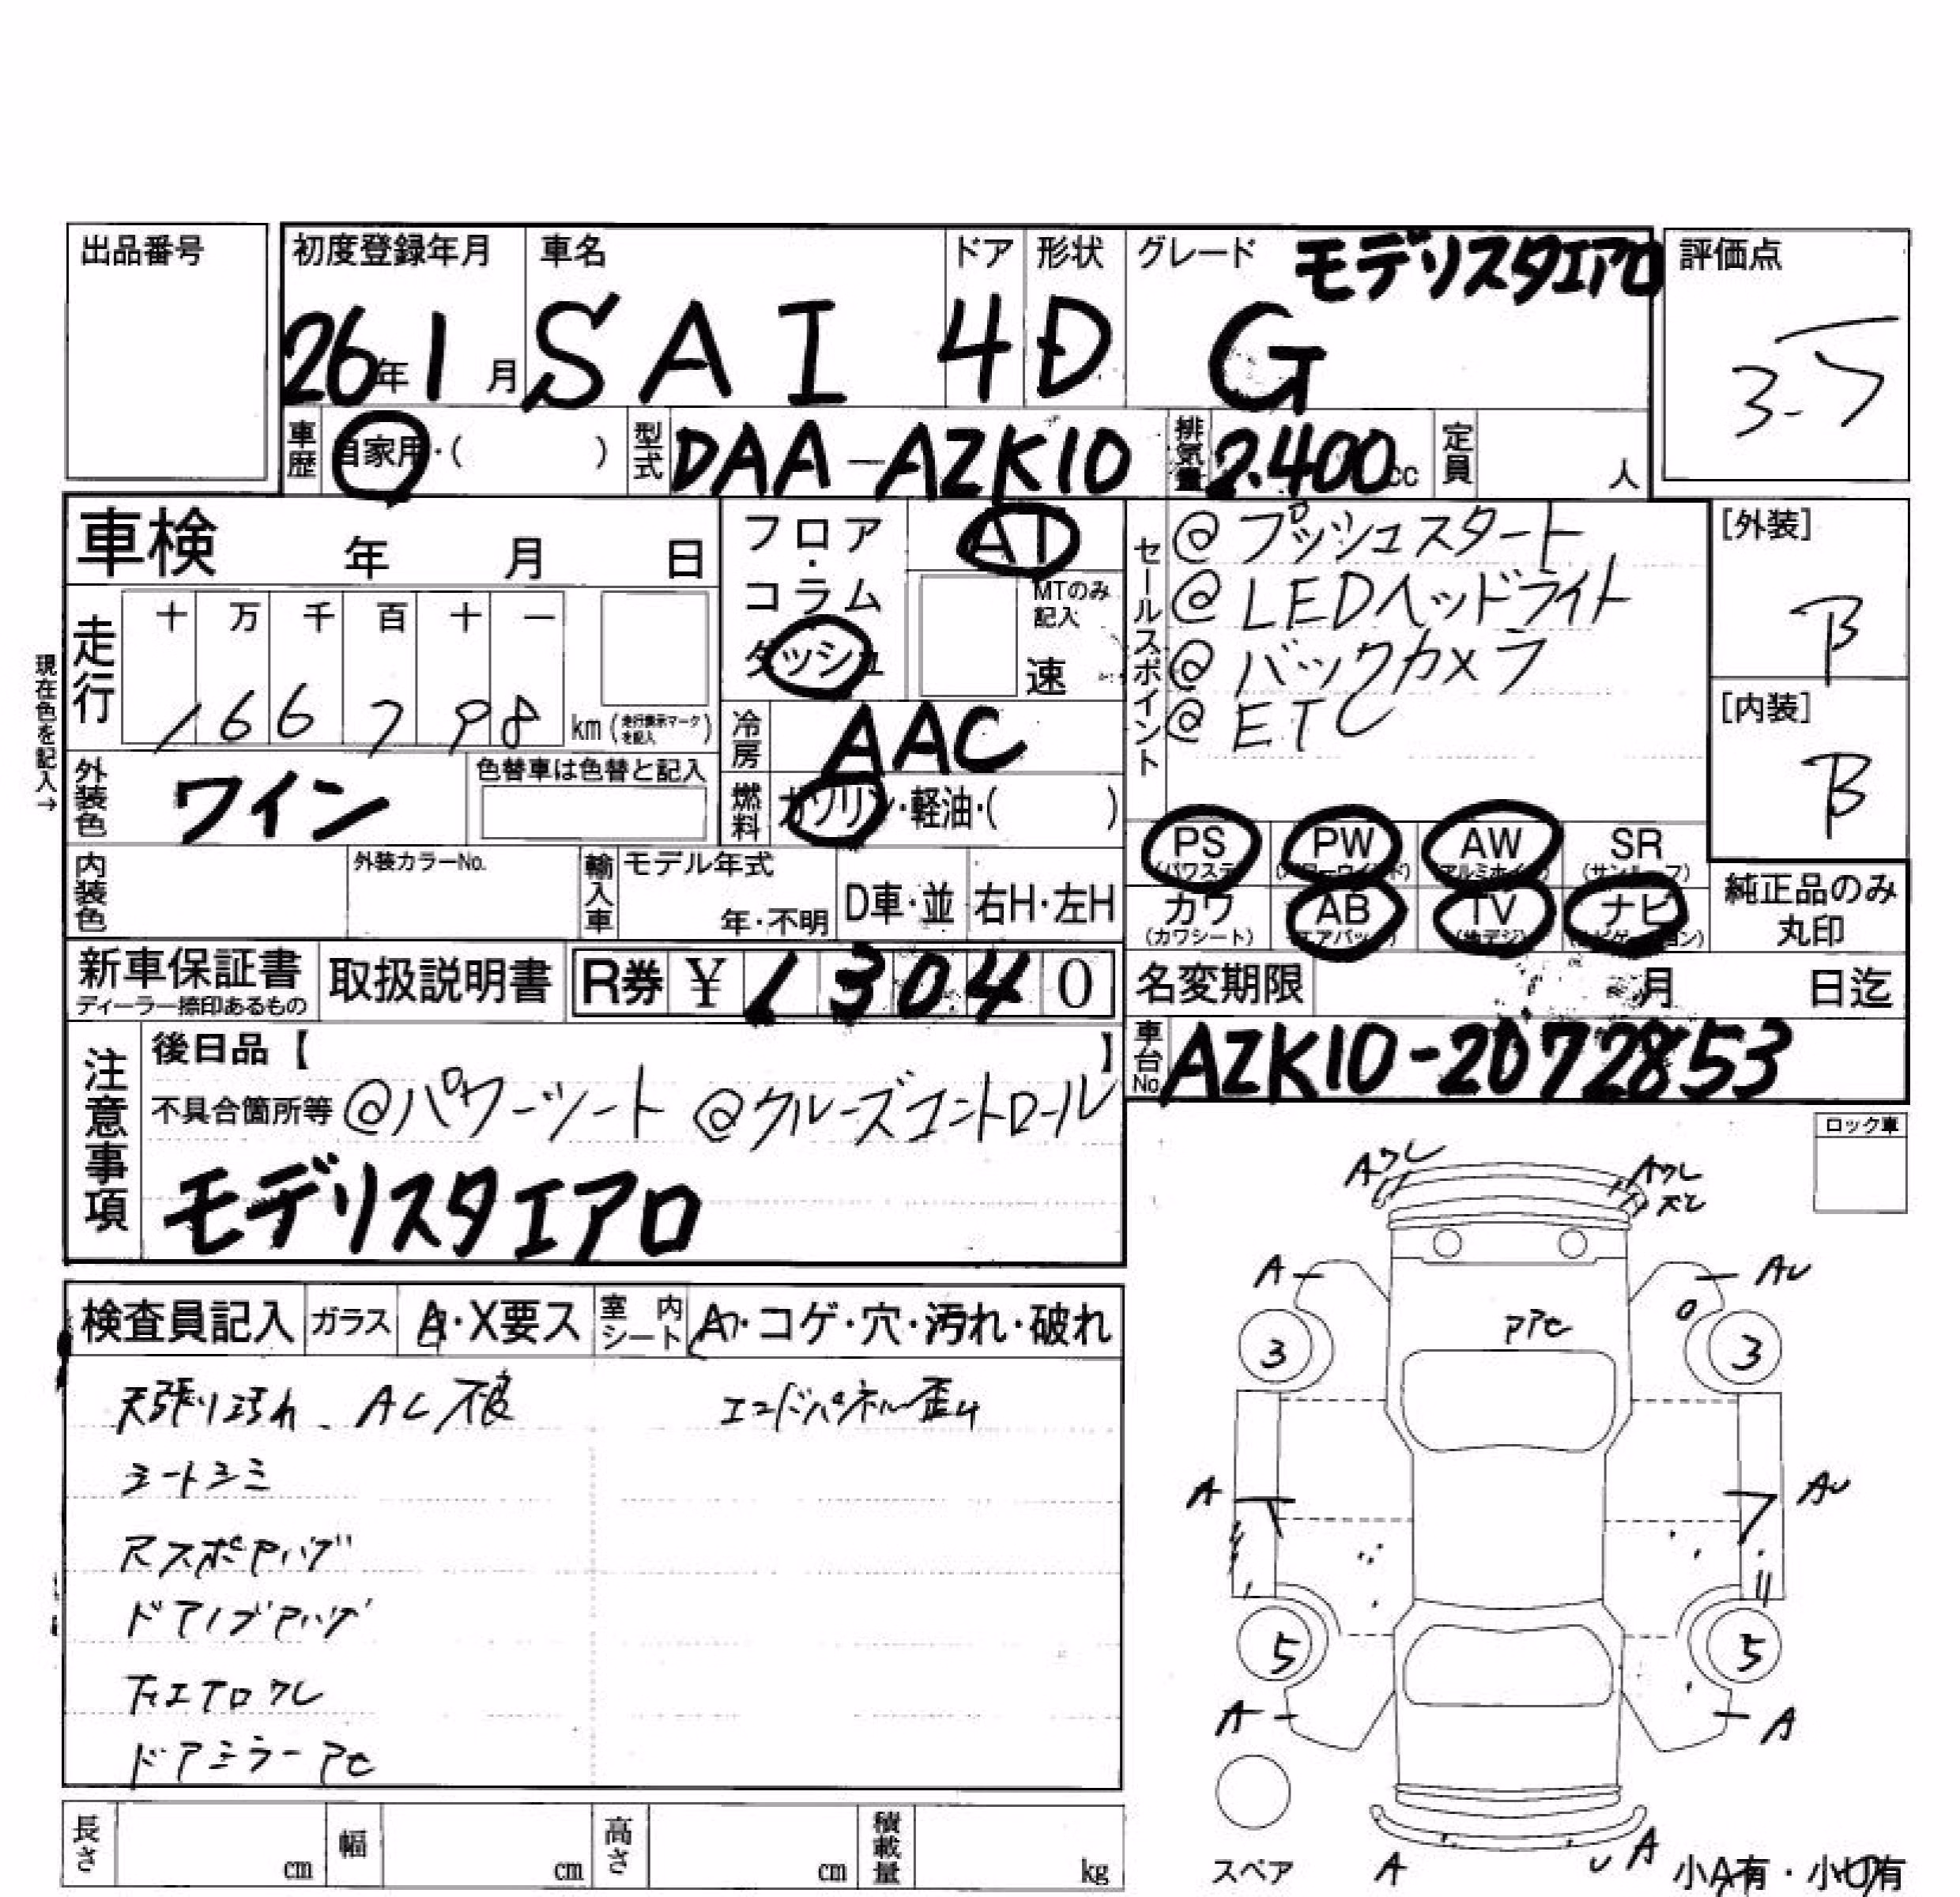 出品番号
初度登録年月 車名 ドア 形状 グレード モデリスタエアロ 評価点
26年1月 SAI 4 D G 3.5
車歴 自家用・( ) 型式 DAA-AZK10 排気量 2.400cc 定員 人
車検 年 月 日
フロア・コラム
ダッシュ
AT
MTのみ記入
速
セールスポイント
@プッシュスタート
@LEDヘッドライト
@バックカメラ
@ETC
[外装]
B
[内装]
B
現在色を記入→
走行 十 万 千 百 十 一
1 6 6 7 9 8 km (走行表示マークを記入)
冷房 AAC
外装色 ワイン 色替車は色替と記入
燃料 ガソリン・軽油・( )
PS (パワステ) PW (パワーウインド) AW (アルミホイル) SR (サンルーフ)
カワ (カワシート) AB (エアバッグ) TV (地デジ) ナビ (ナビゲーション)
純正品のみ丸印
内装色 外装カラーNo. 輸入車 モデル年式 年・不明 D車・並 右H・左H
新車保証書 ディーラー捺印あるもの 取扱説明書 R券 ¥ 1 3 0 4 0
名変期限 月 日迄
車台No. AZK10-2072853
注意事項
後日品【 】
不具合箇所等 @パワーシート @クルーズコントロール
モデリスタエアロ
ロック車
検査員記入 ガラス A・X要ス 室内シート A・コゲ・穴・汚れ・破れ
天張り汚れ、AC不良 エンドパネル歪み
シートシミ
ドアノブ
下エアロワレ
ドアミラー
Aワレ Aワレ
ズレ
A AU
3 3
A AU
5 5
A A
スペア A U A 小A有・小U有
長さ cm 幅 cm 高さ cm 積載量 kg